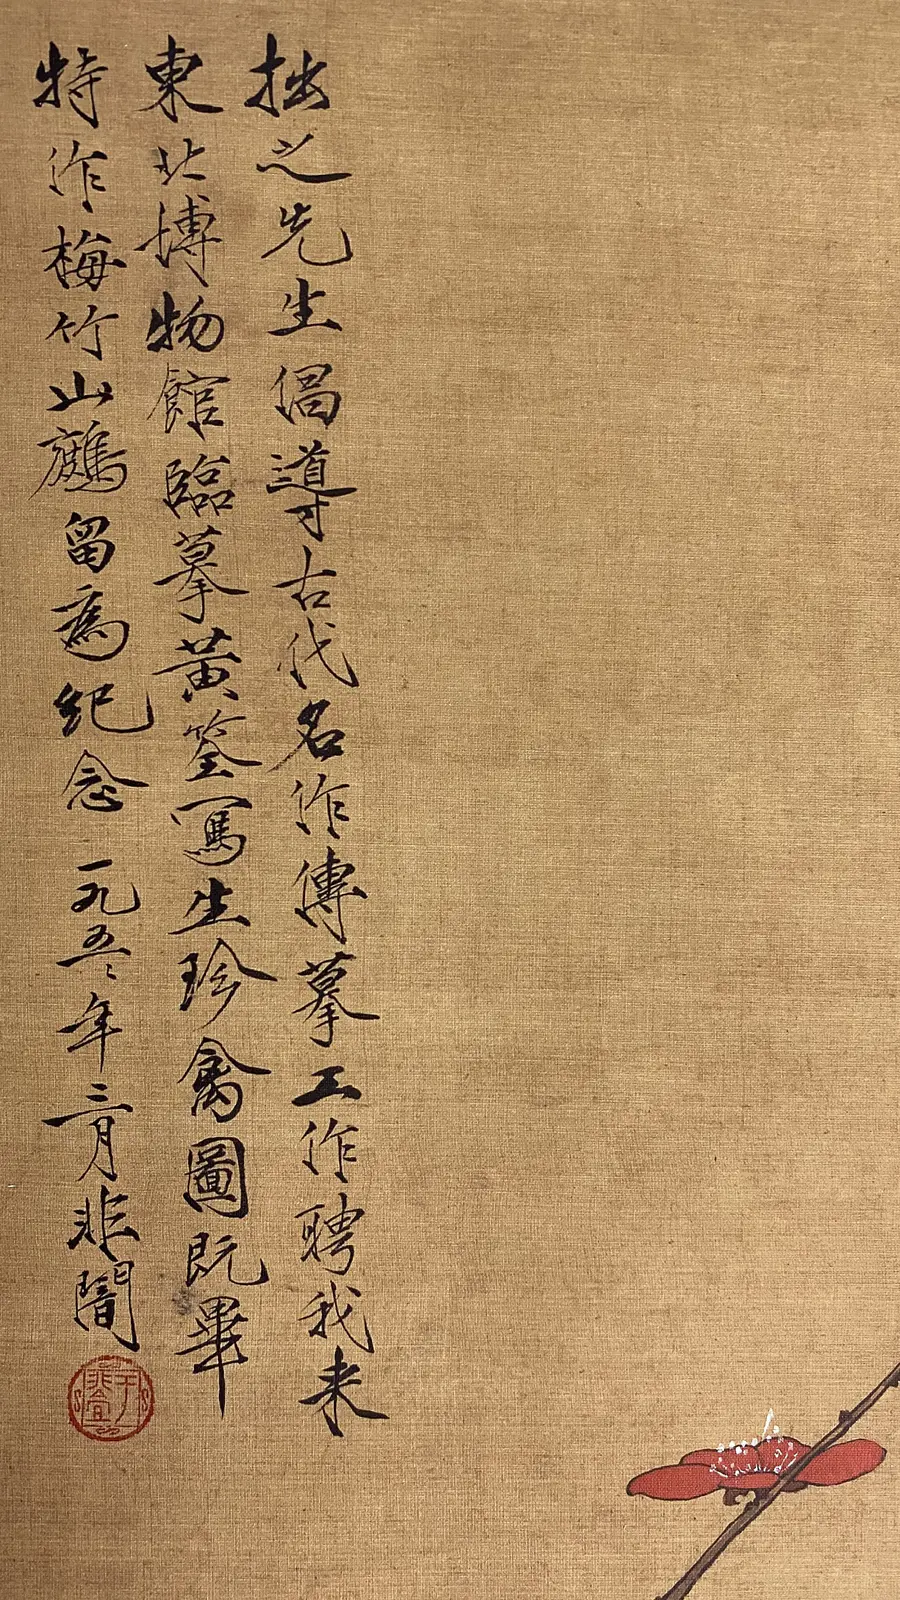 拙之先生倡導古代名作傳摹工作聘我来
東北博物館臨摹黃筌寫生珍禽圖既畢
特作梅竹山鷓留為紀念一九五〻年三月非闇
于非盫